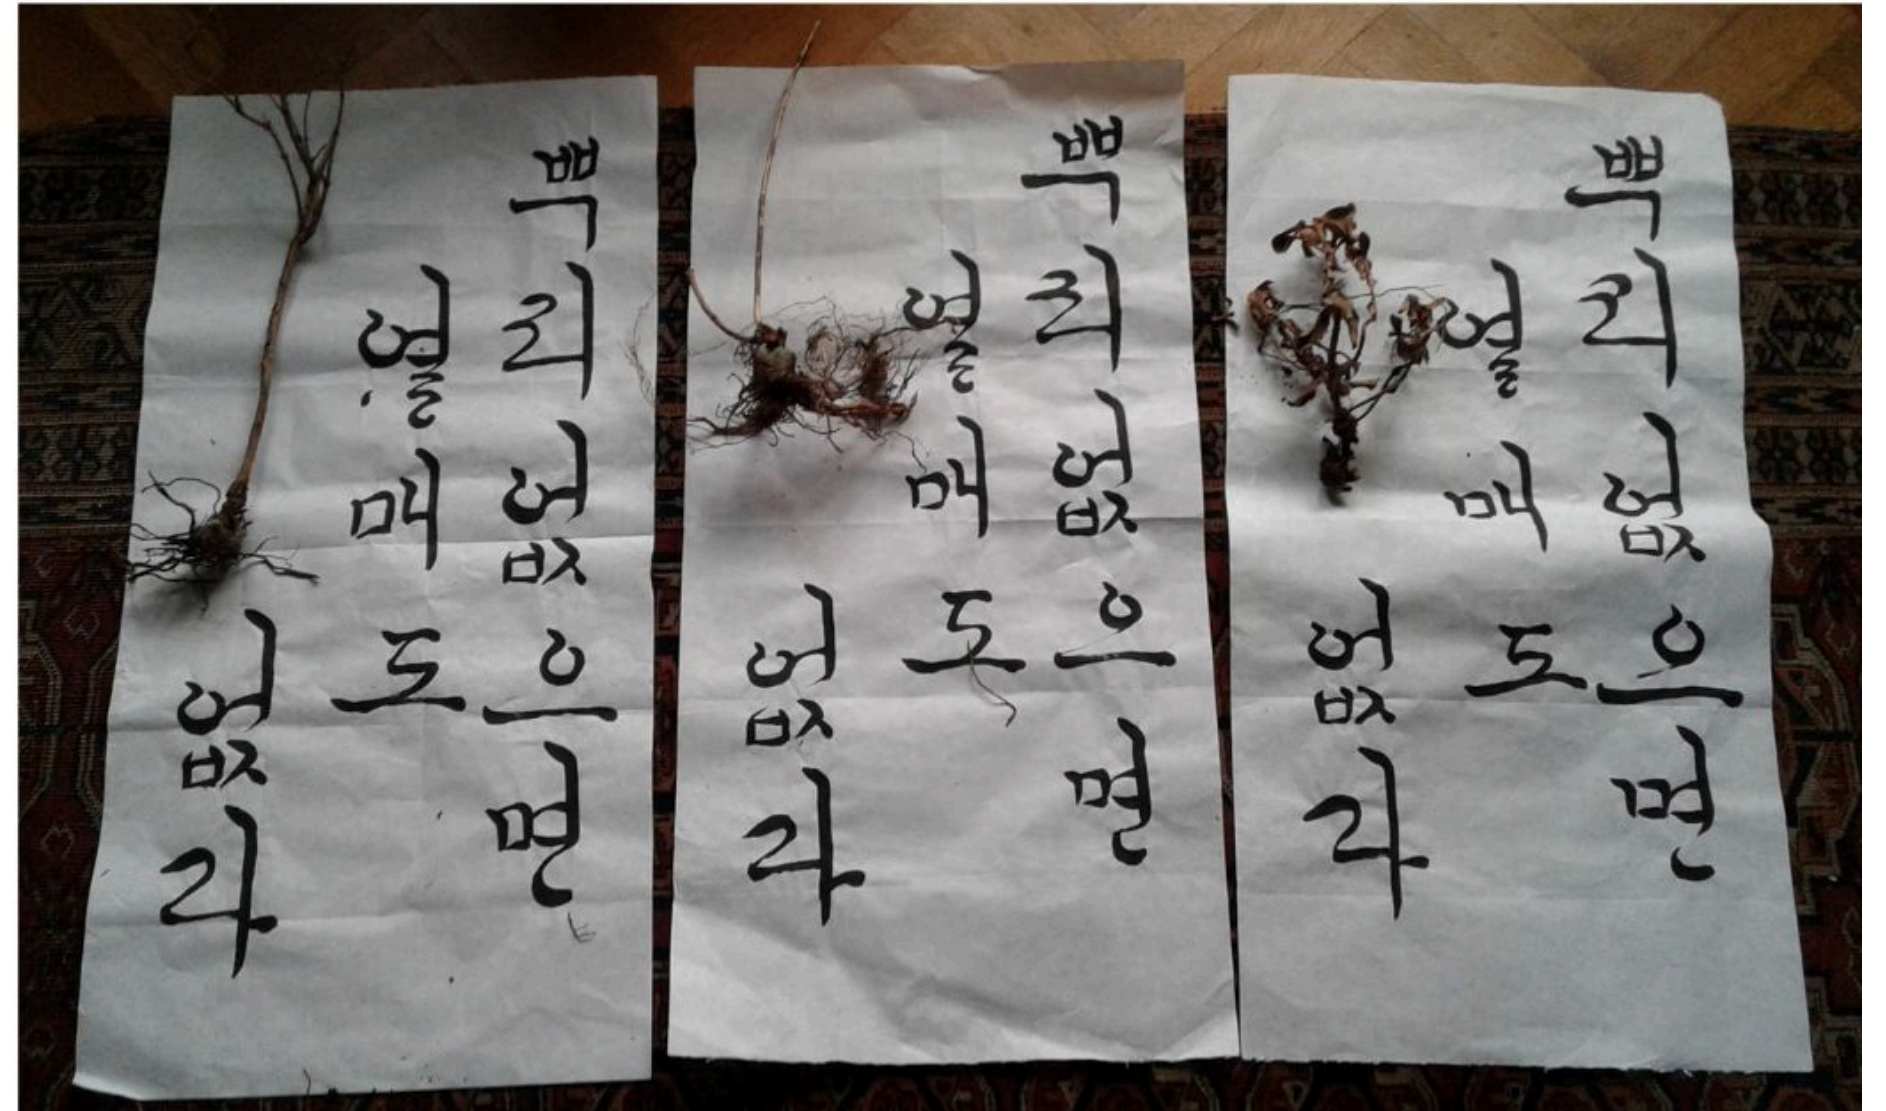 뿌리없으면
열매도
없다
뿌리없으면
열매도
없다
뿌리없으면
열매도
없다